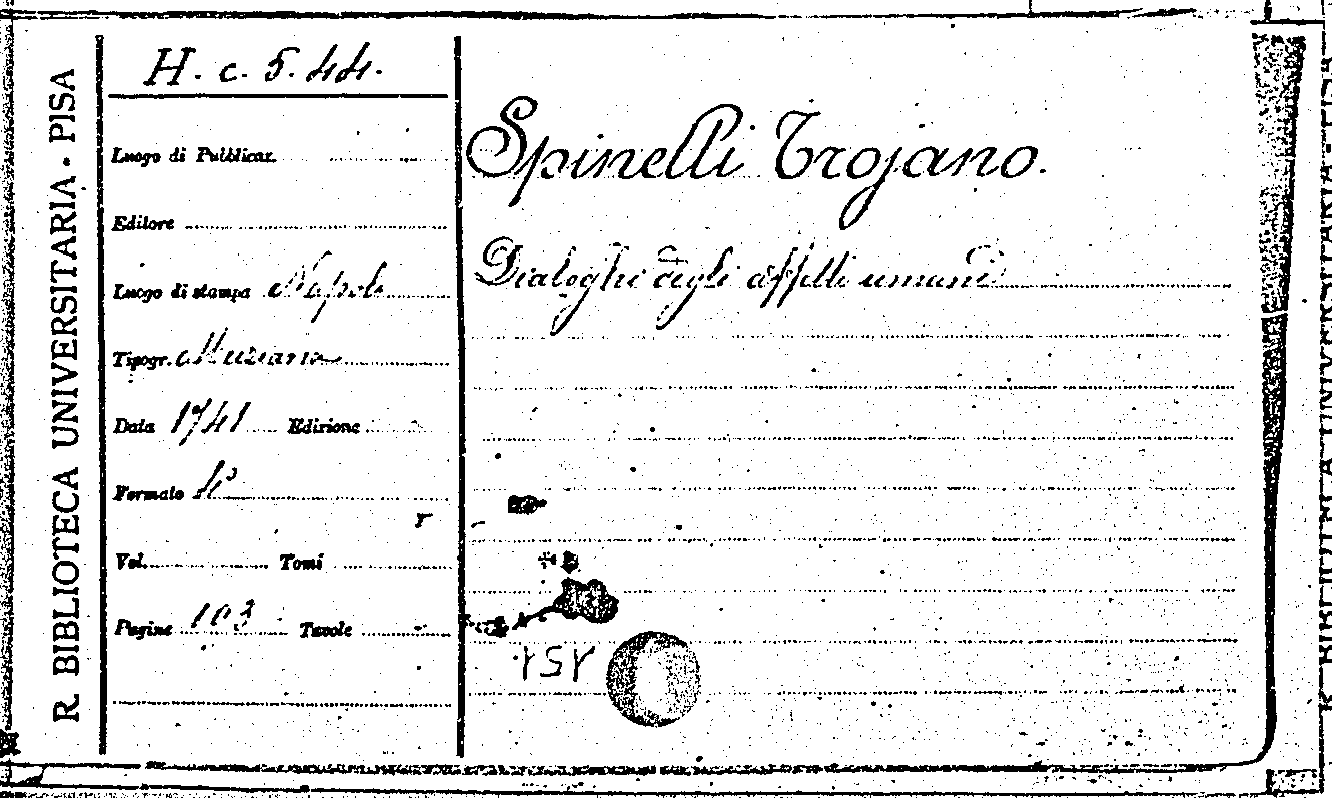 R. BIBLIOTECA UNIVERSITARIA - PISA
H. c. 5. 44.
Luogo di Pubblicaz.
Editore
Luogo di stampa Napoli
Tipogr. Muziana
Data 1741 Edizione
Formato 4°
Vol. Tomi
Pagine 103 Tavole
Spinelli Trojano.
Dialoghi degli affetti umani